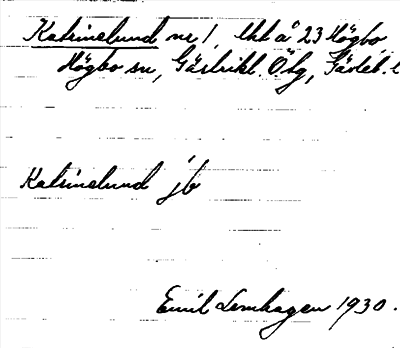 Katrinelund nr 1, lht å 23 Högbo
Högbo sn, Gästrikl. Ötg, Gävleb. l
Katrinelund jb
Emil Lernhagen 1930.